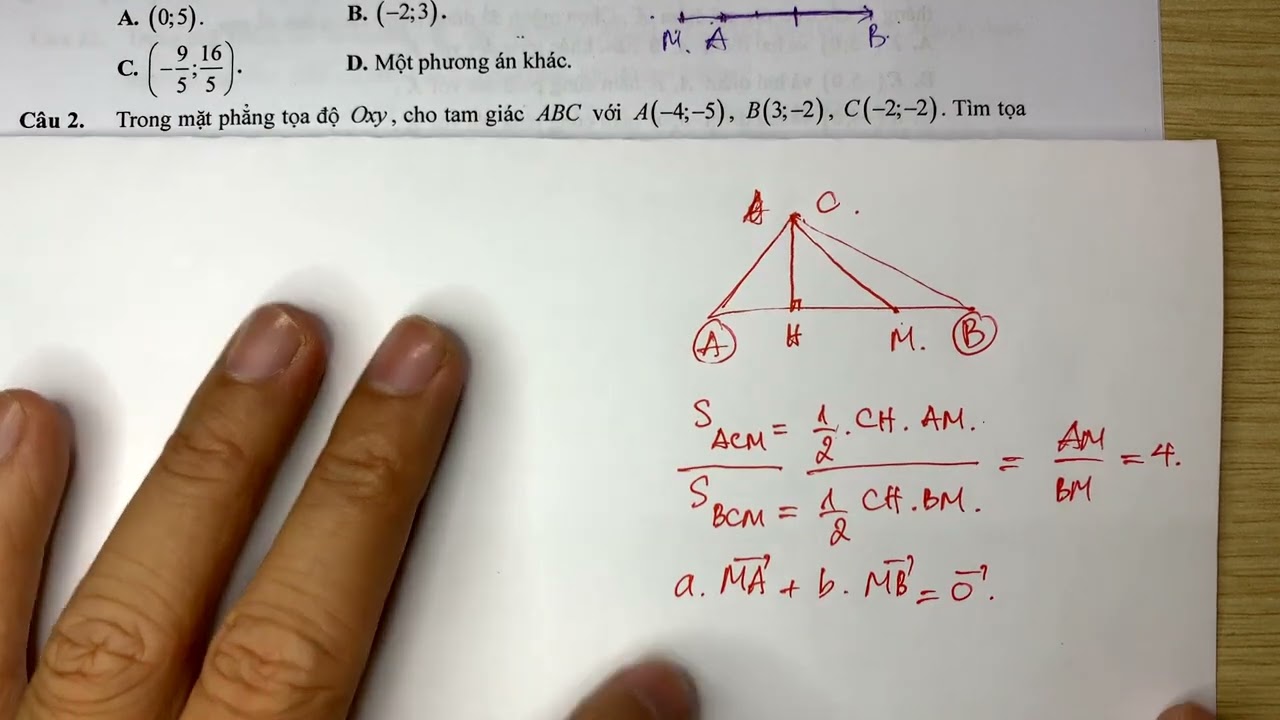 A. (0;5). B. (−2;3).
M. A B.
C. (−9/5;16/5). D. Một phương án khác.
Câu 2. Trong mặt phẳng tọa độ Oxy, cho tam giác ABC với A(−4;−5), B(3;−2), C(−2;−2). Tìm tọa
C.
A H M. B
S_ACM = 1/2 . CH . AM.
= AM/BM = 4.
S_BCM = 1/2 CH . BM.
a. MA⃗ + b. MB⃗ = 0⃗.